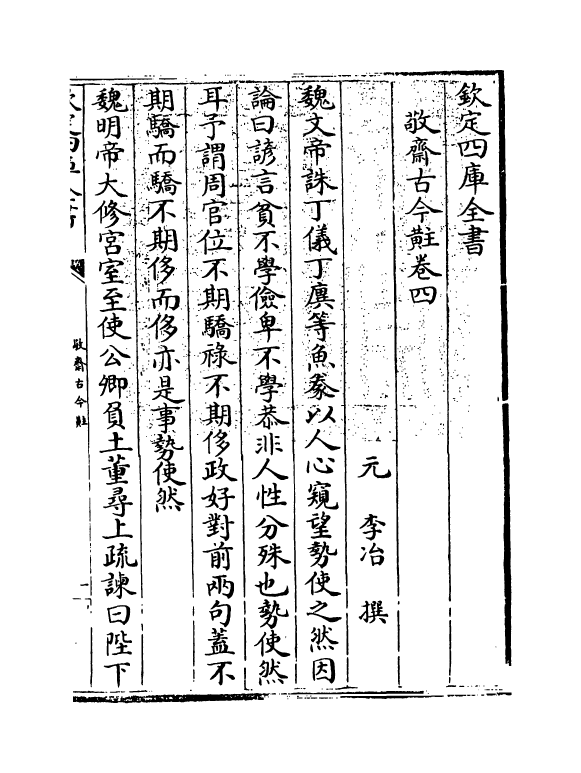 欽定四庫全書
敬齋古今黈卷四
元 李冶 撰
魏文帝誅丁儀丁廙等魚豢以人心窺望勢使之然因
論曰諺言貧不學儉卑不學恭非人性分殊也勢使然
耳予謂周官位不期驕祿不期侈政好對前兩句蓋不
期驕而驕不期侈而侈亦是事勢使然
魏明帝大修宮室至使公卿負土董尋上疏諫曰陛下
敬齋古今黈
一